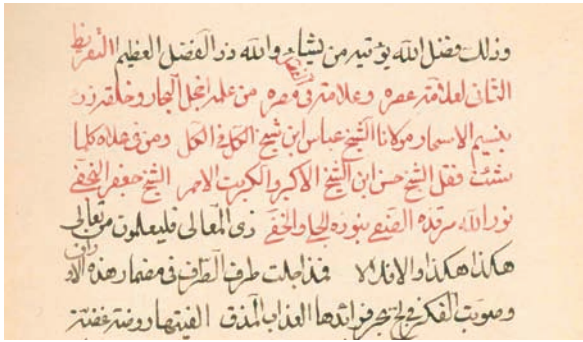 وذلك فضل الله يؤتيه من يشاء والله ذو الفضل العظيم التقريظ
الثاني لعلامة عصره وعلامة في مصره من علمه اخجل البحار وخلقه زرى
بنسيم الاسحار مولانا الشيخ عباس ابن شيخ الكل في الكل ومن في علاه كلما
شئت فقل الشيخ حسن ابن الشيخ الاكبر والكبريت الاحمر الشيخ جعفر النجفي
نور الله مرقده بنوره الجلي والخفي ذي المعالي فليعلون من تعالى
هكذا هكذا والا فلا لا قد اجلت طرف الطرف في مضمار هذه الاوراق
وصوبت الفكر في لج بحر فوائدها العذاب المذق الفيتها روضة غضة